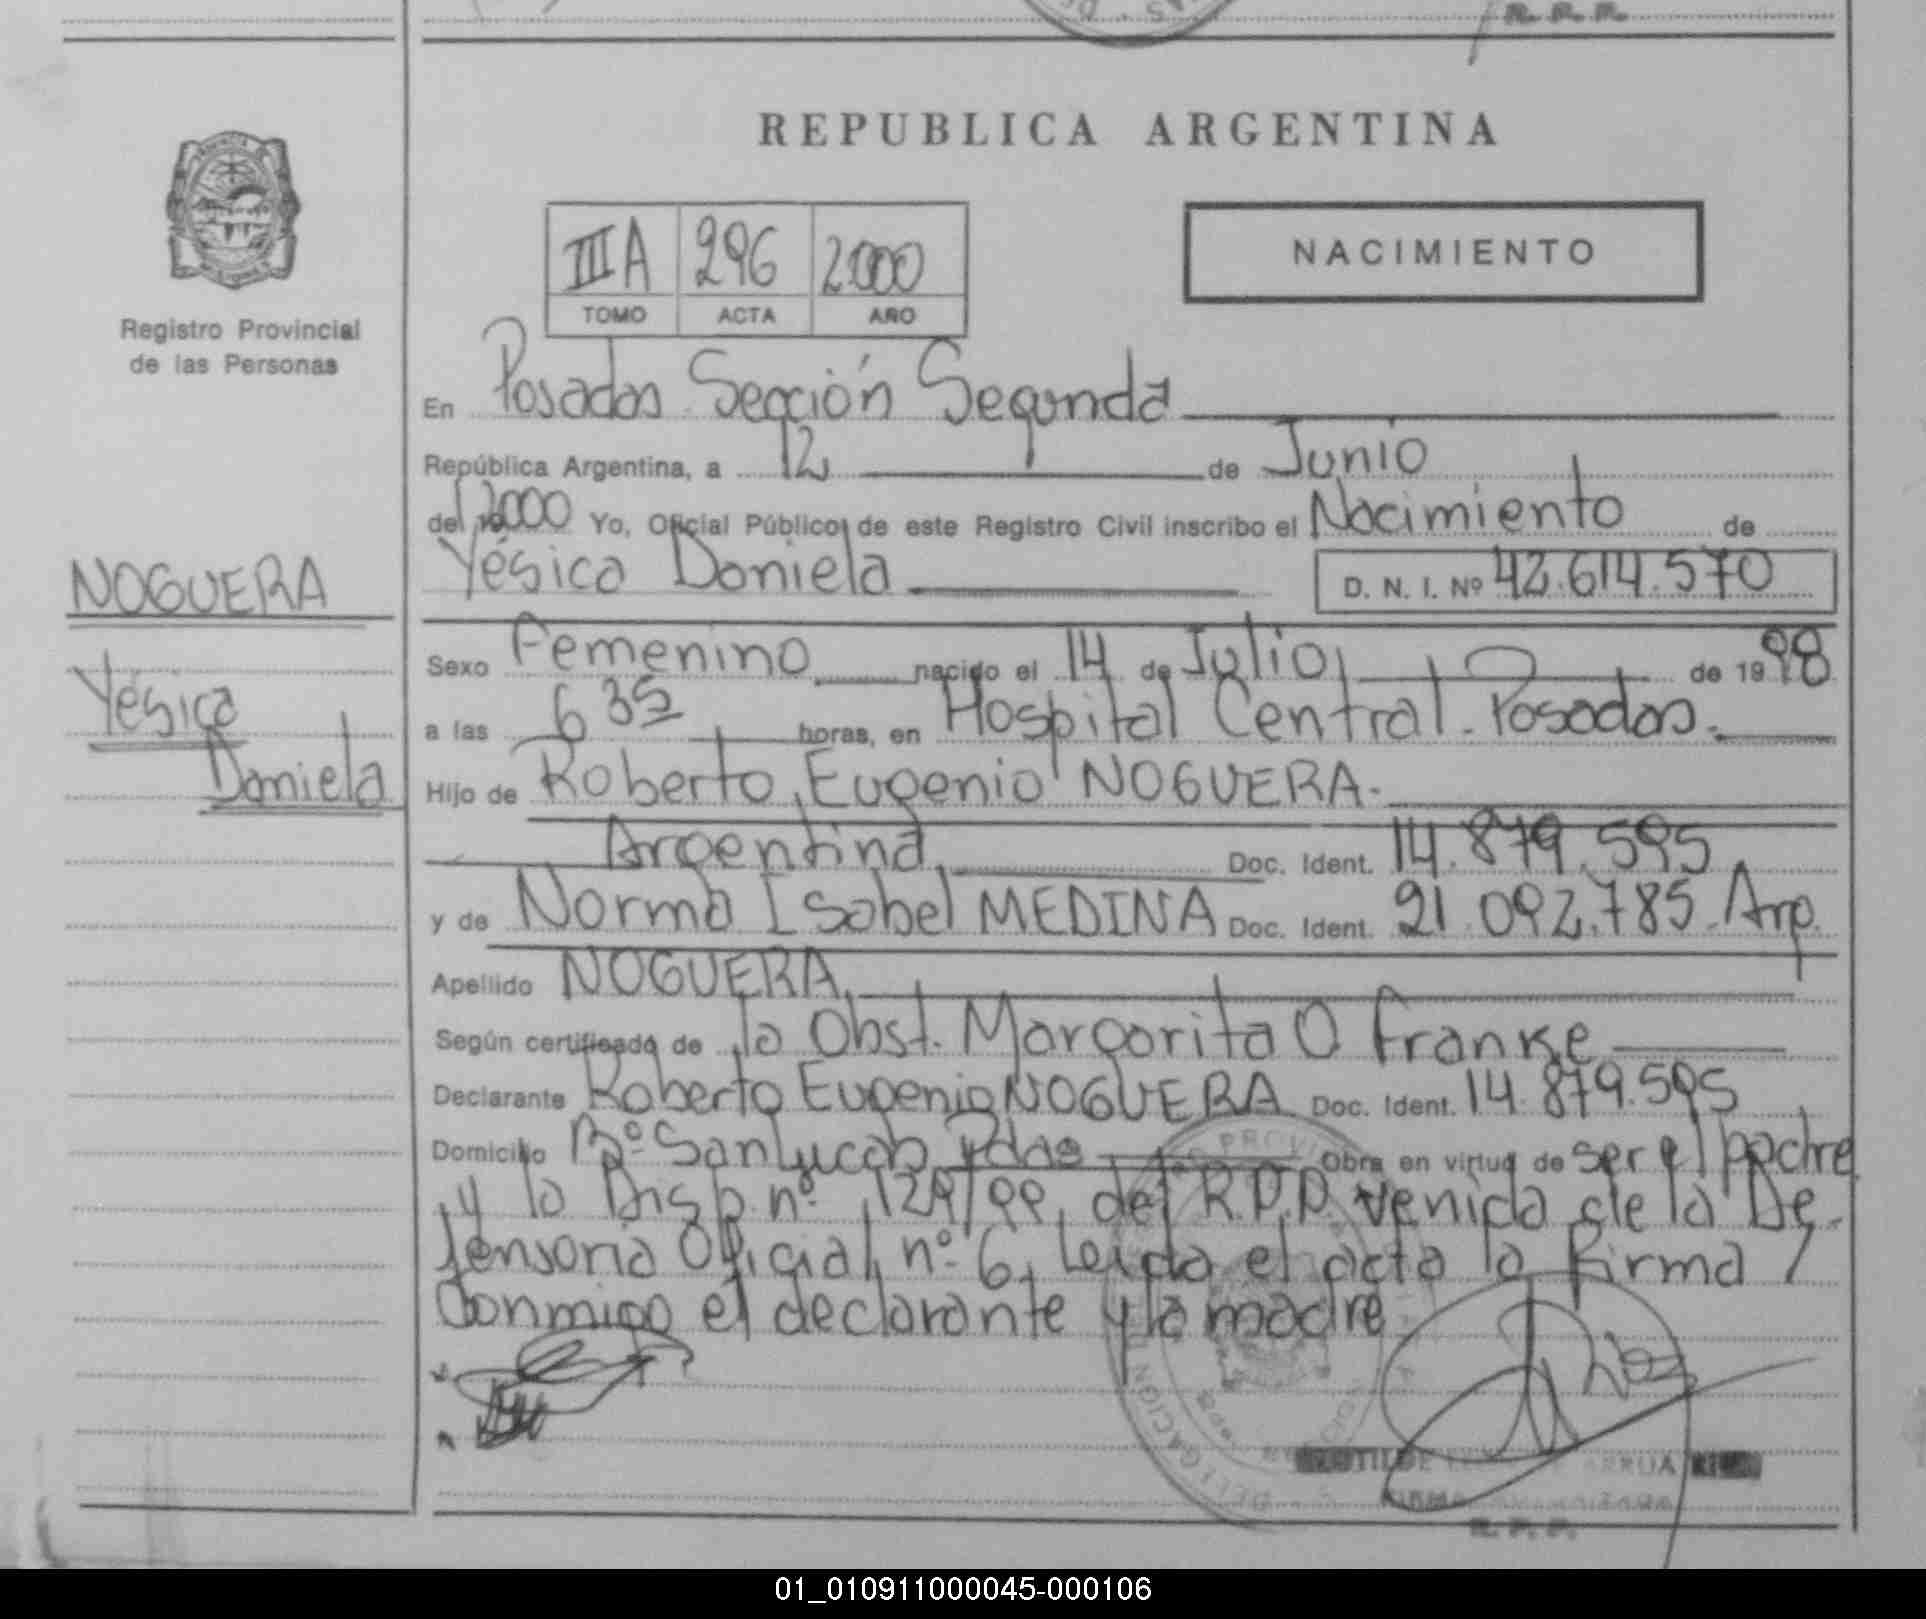 R. P. P.
REPUBLICA ARGENTINA
III A 296 2.000
TOMO ACTA AÑO
NACIMIENTO
Registro Provincial
de las Personas
En Posadas Sección Segunda
República Argentina, a 12 de Junio
del 2000 Yo, Oficial Público de este Registro Civil inscribo el Nacimiento de
Yésica Daniela D. N. I. Nº 42.614.570
NOGUERA
Yésica
Daniela
Sexo Femenino nacido el 14 de Julio de 1998
a las 6 35 horas, en Hospital Central - Posadas.
Hijo de Roberto Eugenio NOGUERA.
Argentina Doc. Ident. 14.879.595
y de Norma Isabel MEDINA Doc. Ident. 21.092.785. Arg.
Apellido NOGUERA
Según certificado de la Obst. Margarita O Franke
Declarante Roberto Eugenio NOGUERA Doc. Ident. 14.879.595
Domicilio Bº San Lucas Pdas Obra en virtud de ser el padre
y la Disp. nº 129/99, del R.P.P. venida de la De-
fensoria Oficial nº 6, Leida el acta la firma
Conmigo el declarante y la madre
DELEGACION
ARRUA
R. P. P.
01_010911000045-000106